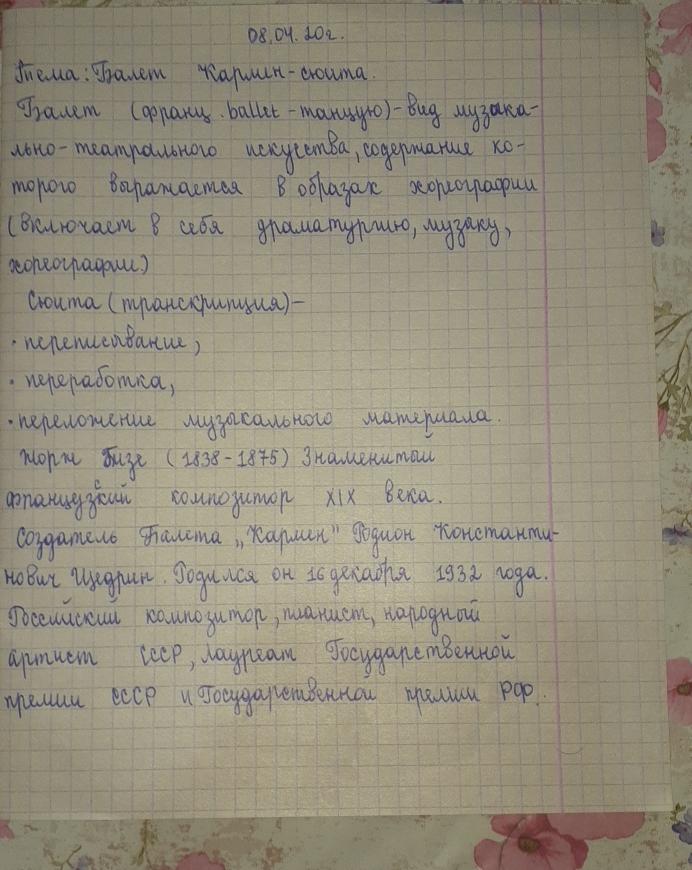 08.04.20г.
Тема: Балет Кармен-сюита.
Балет (франц. ballet - танцую) - вид музыка-
льно-театрального искусства, содержание ко-
торого выражается в образах хореографии
(включает в себя драматургию, музыку,
хореографии)
Сюита (транскрипция) -
• переписывание,
• переработка,
• переложение музыкального материала.
Жорж Бизе (1838 - 1875) Знаменитый
французский композитор XIX века.
Создатель Балета „Кармен" Родион Константи-
нович Щедрин. Родился он 16 декабря 1932 года.
Российский композитор, пианист, народный
артист СССР, лауреат Государственной
премии СССР и Государственной премии РФ.